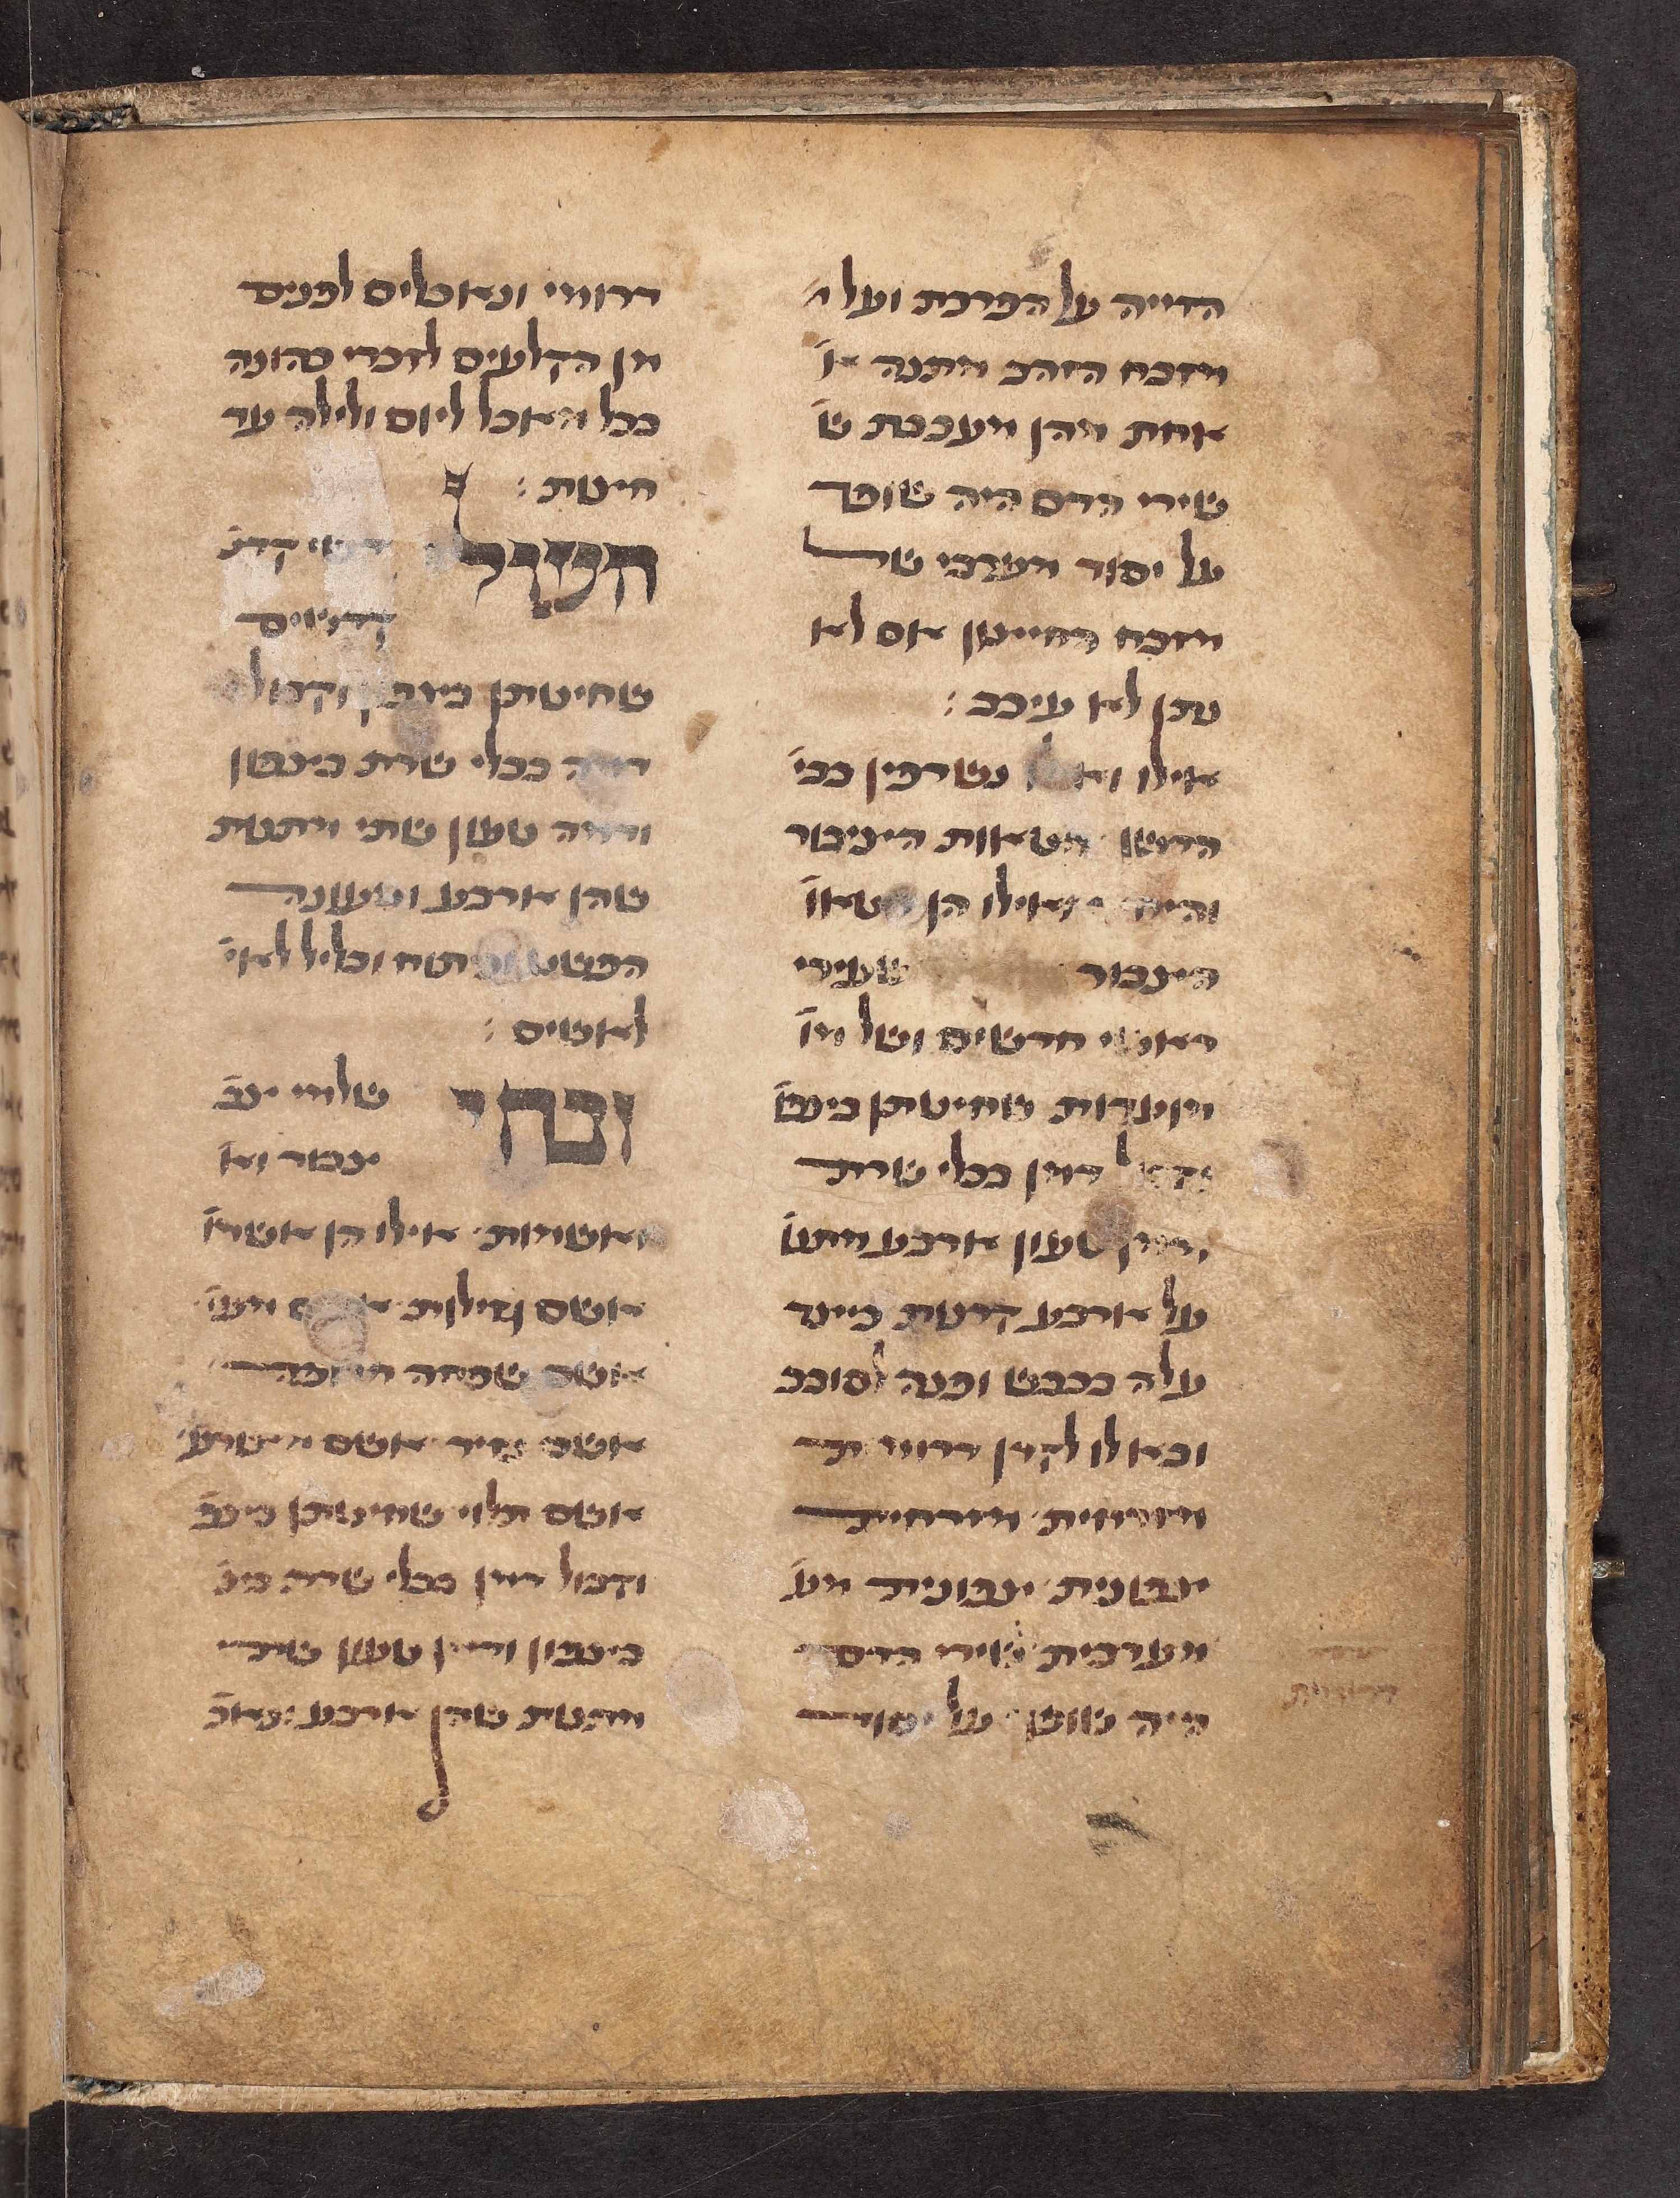 הזייה על הפרכת ועל
מזבח הזהב מתנה א׳
אחת מהן מעכבת ש׳
שירי הדם היה שופך
על יסוד מערבי של
מזבח החיצון אם לא
נתן לא עיכב :
אילו ואילו נשרפין בבי׳
הדשן חטאות הציבור
והיחיד אילו הן חטאו׳
הציבור שעירי
ראשי חדשים ושל מו׳
מועדות שחיטתן בצפו׳
וקבול דמן בכלי שרת
ודמן טעון ארבע מתנ׳
על ארבע קרנות כיצד
עלה בכבש ופנה לסובב
ובא לו לקרן דרומית
מזרחית מזרחית
צפונית צפונית מע׳
מערבית שירי הדם
היה שופך על יסוד
דרומי ונאכלים לפנים
מן הקלעים לזכרי כהונה
בכל מאכל ליום ולילה עד
חצות :
העולה קדשי קדש׳
קדשים
שחיטתן בצפון וקבול
דמה בכלי שרת בצפון
ודמה טעון שתי מתנות
שהן ארבע וטעונה
הפשט ונתוח וכליל לאי׳
לאשים :
זבחי שלמי צב׳
צבור וא׳
ואשמות אילו הן אשמ׳
אשם גזילות אשם מעי׳
אשם שפחה חרופה
אשם נזיר אשם מצורע
אשם תלוי שחיטתן בצפ׳
וקבול דמן בכלי שרת בצ׳
בצפון ודמן טעון שתי
מתנות שהן ארבע ונאכ׳